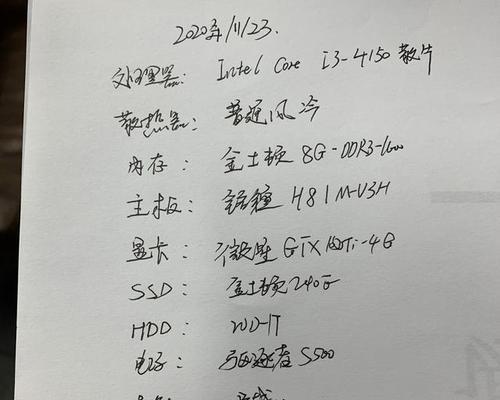 2020年11/23.
处理器: Intel Core i3-4150 散片
散热器: 普通风冷
内存: 金士顿 8G-DDR3-1600
主板: 铭瑄 H81M-V3H
显卡: 微星 GTX 1050Ti-4G
SSD: 金士顿 240G
HDD: WD-1T
电子: S500